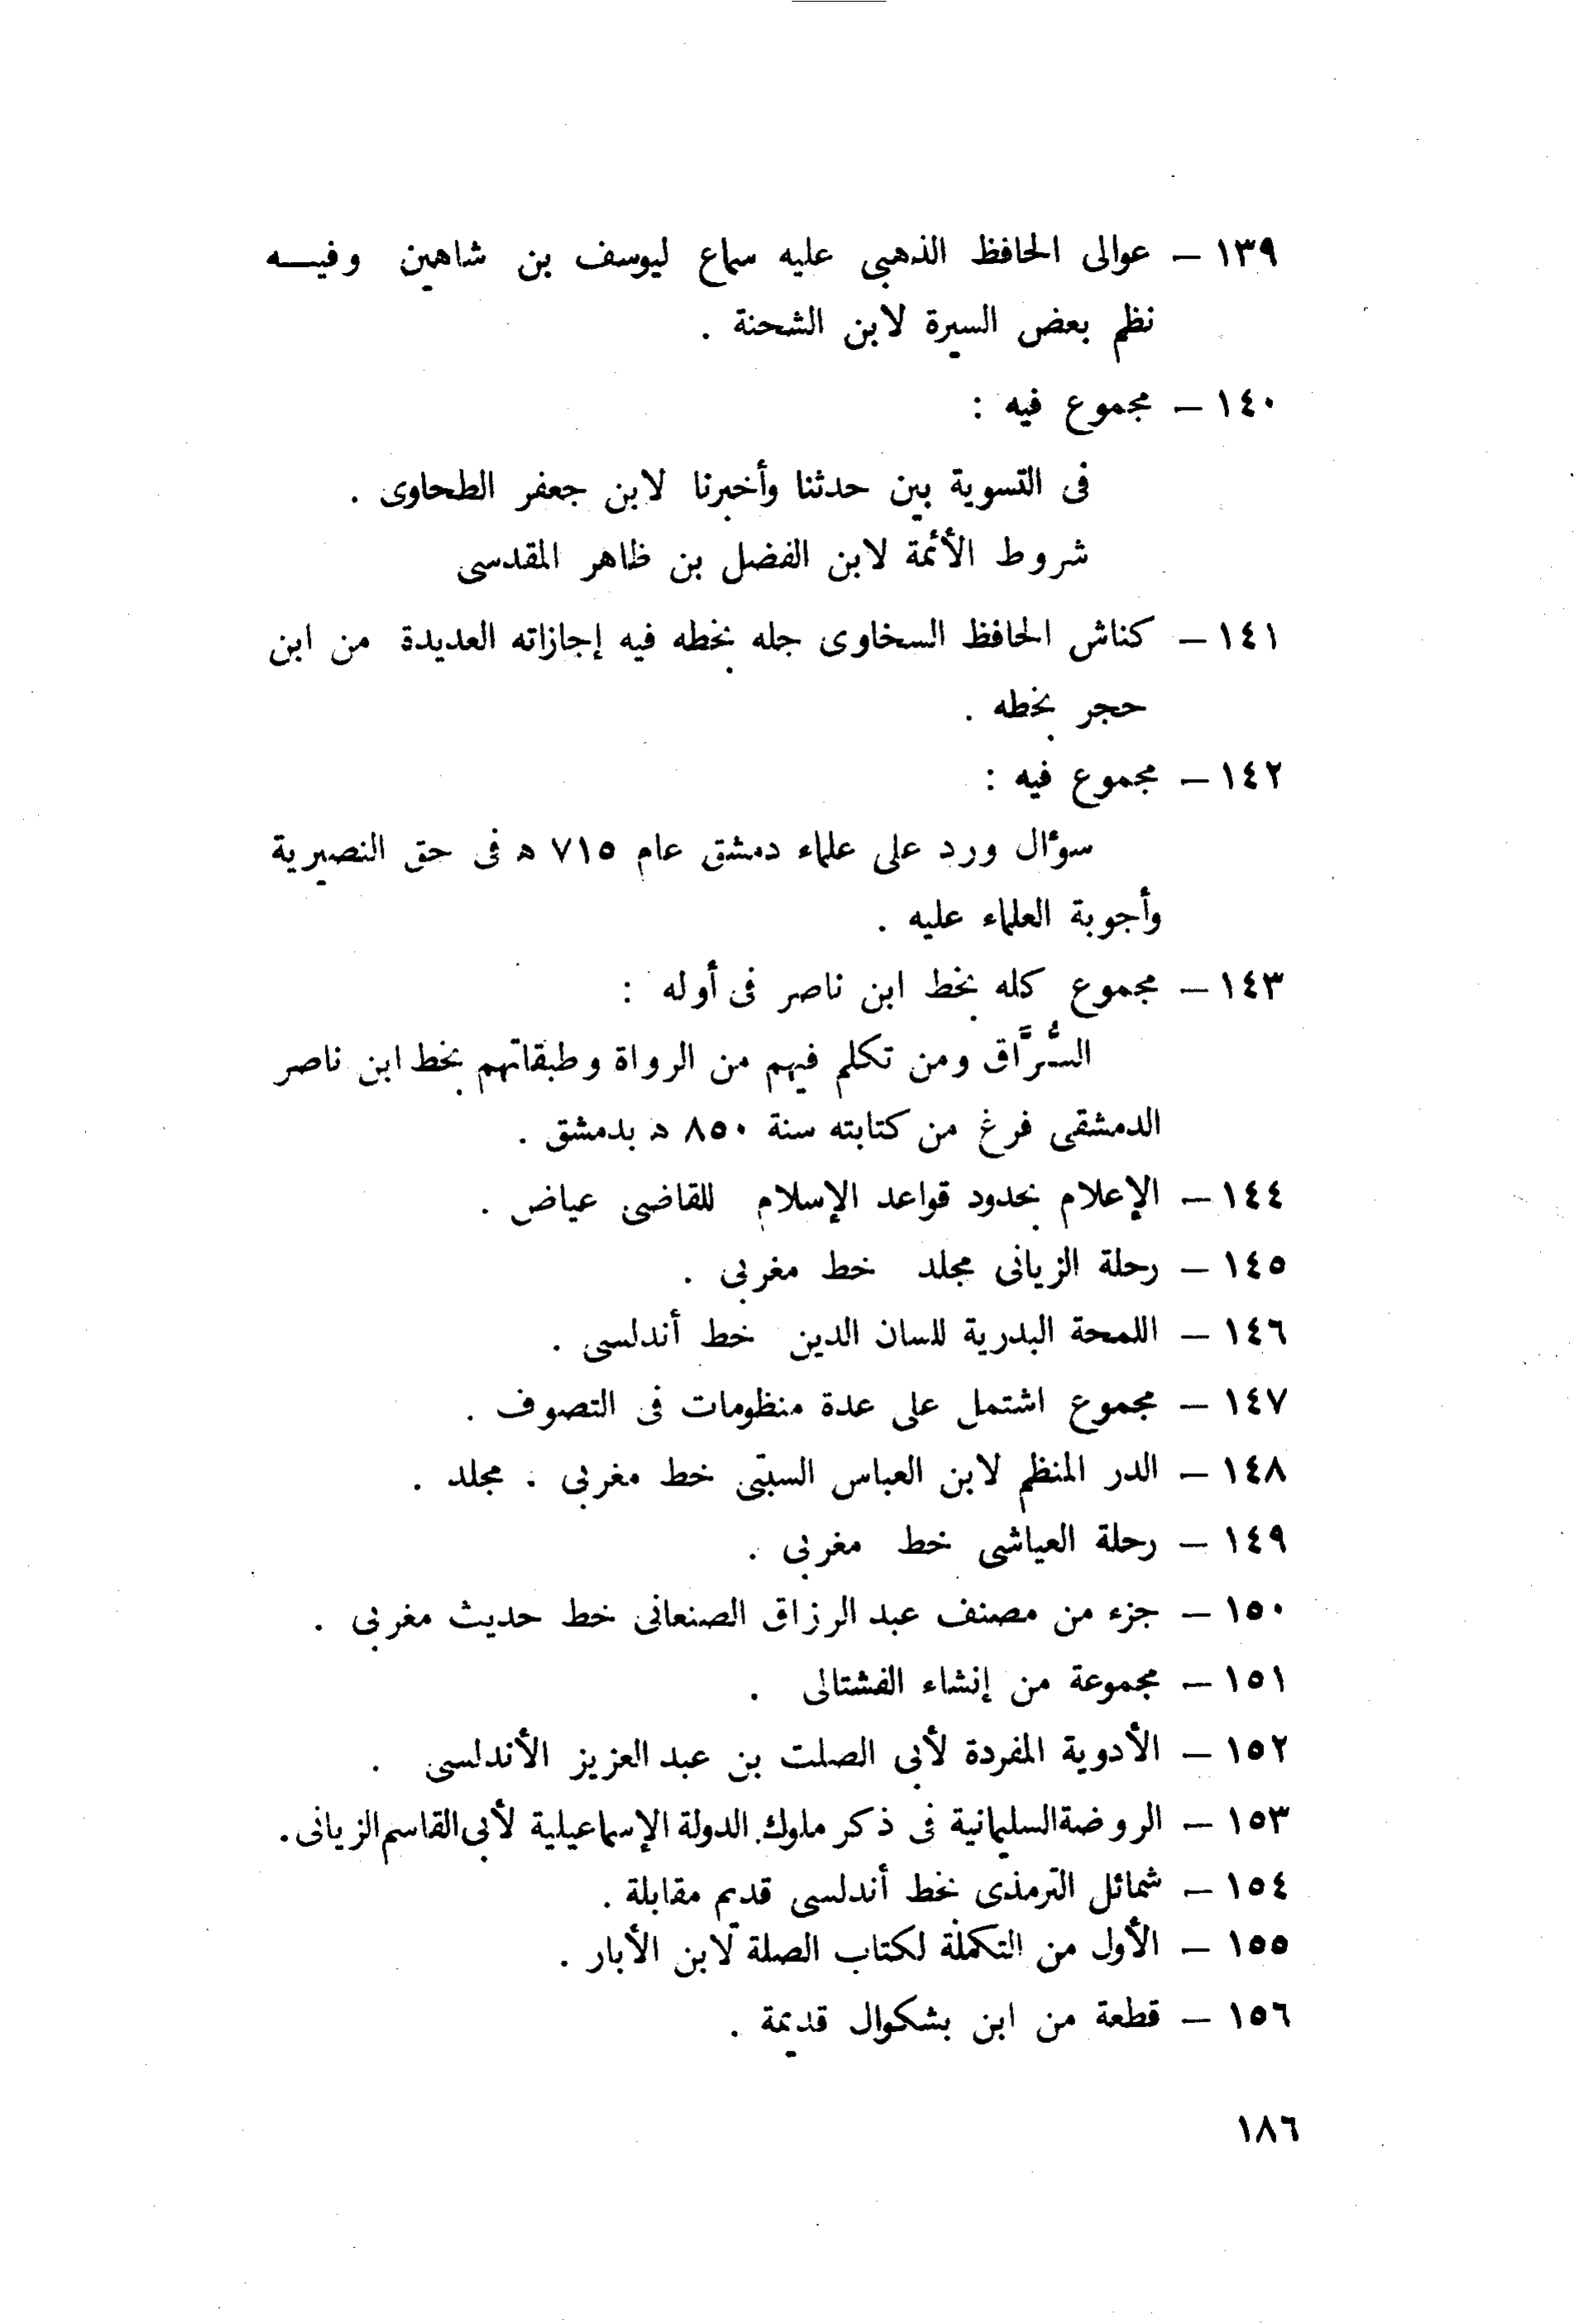 ١٣٩ — عوالى الحافظ الذهبى عليه سماع ليوسف بن شاهين وفيـــه
نظم بعض السيرة لابن الشحنة .
١٤٠ — مجموع فيه :
فى التسوية بين حدثنا وأخبرنا لابن جعفر الطحاوى .
شروط الأئمة لابن الفضل بن ظاهر المقدسى
١٤١ — كناش الحافظ السخاوى جله بخطه فيه إجازاته العديدة من ابن
حجر بخطه .
١٤٢ — مجموع فيه :
سؤال ورد على علماء دمشق عام ٧١٥ ه فى حق النصيرية
وأجوبة العلماء عليه .
١٤٣ — مجموع كله بخط ابن ناصر فى أوله :
السُّرَّاق ومن تكلم فيهم من الرواة وطبقاتهم بخط ابن ناصر
الدمشقى فرغ من كتابته سنة ٨٥٠ ه بدمشق .
١٤٤ — الإعلام بحدود قواعد الإسلام للقاضى عياض .
١٤٥ — رحلة الزيانى مجلد خط مغربى .
١٤٦ — اللمحة البدرية للسان الدين خط أندلسى .
١٤٧ — مجموع اشتمل على عدة منظومات فى التصوف .
١٤٨ — الدر المنظم لابن العباس السبتى خط مغربى . مجلد .
١٤٩ — رحلة العياشى خط مغربى .
١٥٠ — جزء من مصنف عبد الرزاق الصنعانى خط حديث مغربى .
١٥١ — مجموعة من إنشاء الفشتالى .
١٥٢ — الأدوية المفردة لأبى الصلت بن عبد العزيز الأندلسى .
١٥٣ — الروضة السليمانية فى ذكر ملوك الدولة الإسماعيلية لأبى القاسم الزيانى .
١٥٤ — شمائل الترمذى بخط أندلسى قديم مقابلة .
١٥٥ — الأول من التكملة لكتاب الصلة لابن الأبار .
١٥٦ — قطعة من ابن بشكوال قديمة .
١٨٦